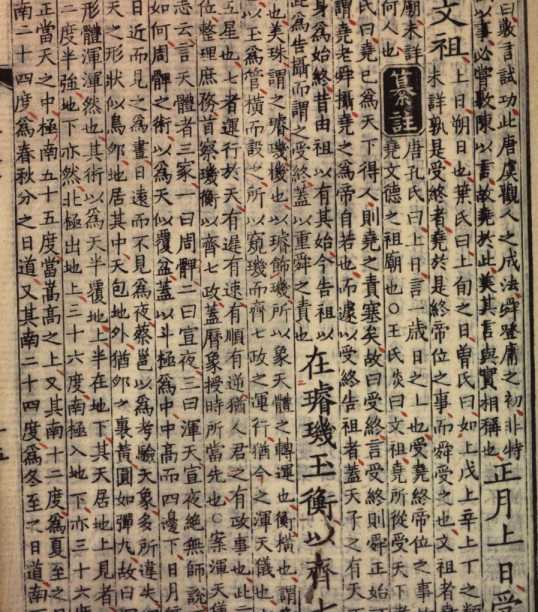 曰敷言試功此唐虞觀人之成法舜登庸之初非特
以事必嘗敷陳以言故堯於此美其言與實相稱也
正月上日受
文祖
上日朔日也葉氏曰上旬之日曾氏曰如上戊上辛上丁之
未詳孰是受終者堯於是終帝位之事而舜受之也文祖者
廟未詳
何人也
纂註
唐孔氏曰上日言一歲日之上也受堯終帝位之事
堯文德之祖廟也○王氏炎曰文祖堯所從受天下
氏曰堯已為天下得人則堯之責塞矣故曰受終言受終則舜正始
謂堯老舜攝堯之為帝自若也而遽以受終告祖者蓋天子之有天
身為始終昔由祖以有其始今告祖以
此為告攝而謂之受終蓋以重舜之責也
在璿璣玉衡以齊
也美珠謂之璿璣機也以璿飾璣所以象天體之轉運也衡橫也謂
以玉為管橫而設之所以窺璣而齊七政之運行猶今之渾天儀也
五星也七者運行於天有遲有速有順有逆猶人君之有政事也此
位整理庶務首察璣衡以齊七政蓋曆象授時所當先也○案渾天儀
志云言天體者三家一曰周髀二曰宣夜三曰渾天宣夜絕無師說
如何周髀之術以為天似覆盆蓋以斗極為中中高而四邊下日月
日近而見之為晝日遠而不見為夜蔡邕以為考驗天象多所違失
天之形狀似鳥卵地居其中天包地外猶卵之裹黃圓如彈丸故曰
形體渾渾然也其術以為天半覆地上半在地下其天居地上見者
二度半強地下亦然北極出地上三十六度南極入地下亦三十六
正當天之中極南五十五度當嵩高之上又其南十二度為夏至之
南二十四度為春秋分之日道又其南二十四度為冬至之日道南